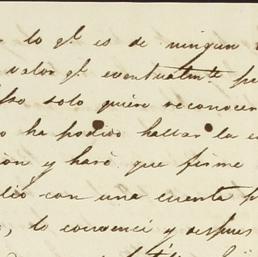 lo q.l es de ningun
valor q.l eventualmte
solo quiere reconocer
o ha podido hallar la
ion y haré que firme
con una cuenta p
, lo convencí y despues